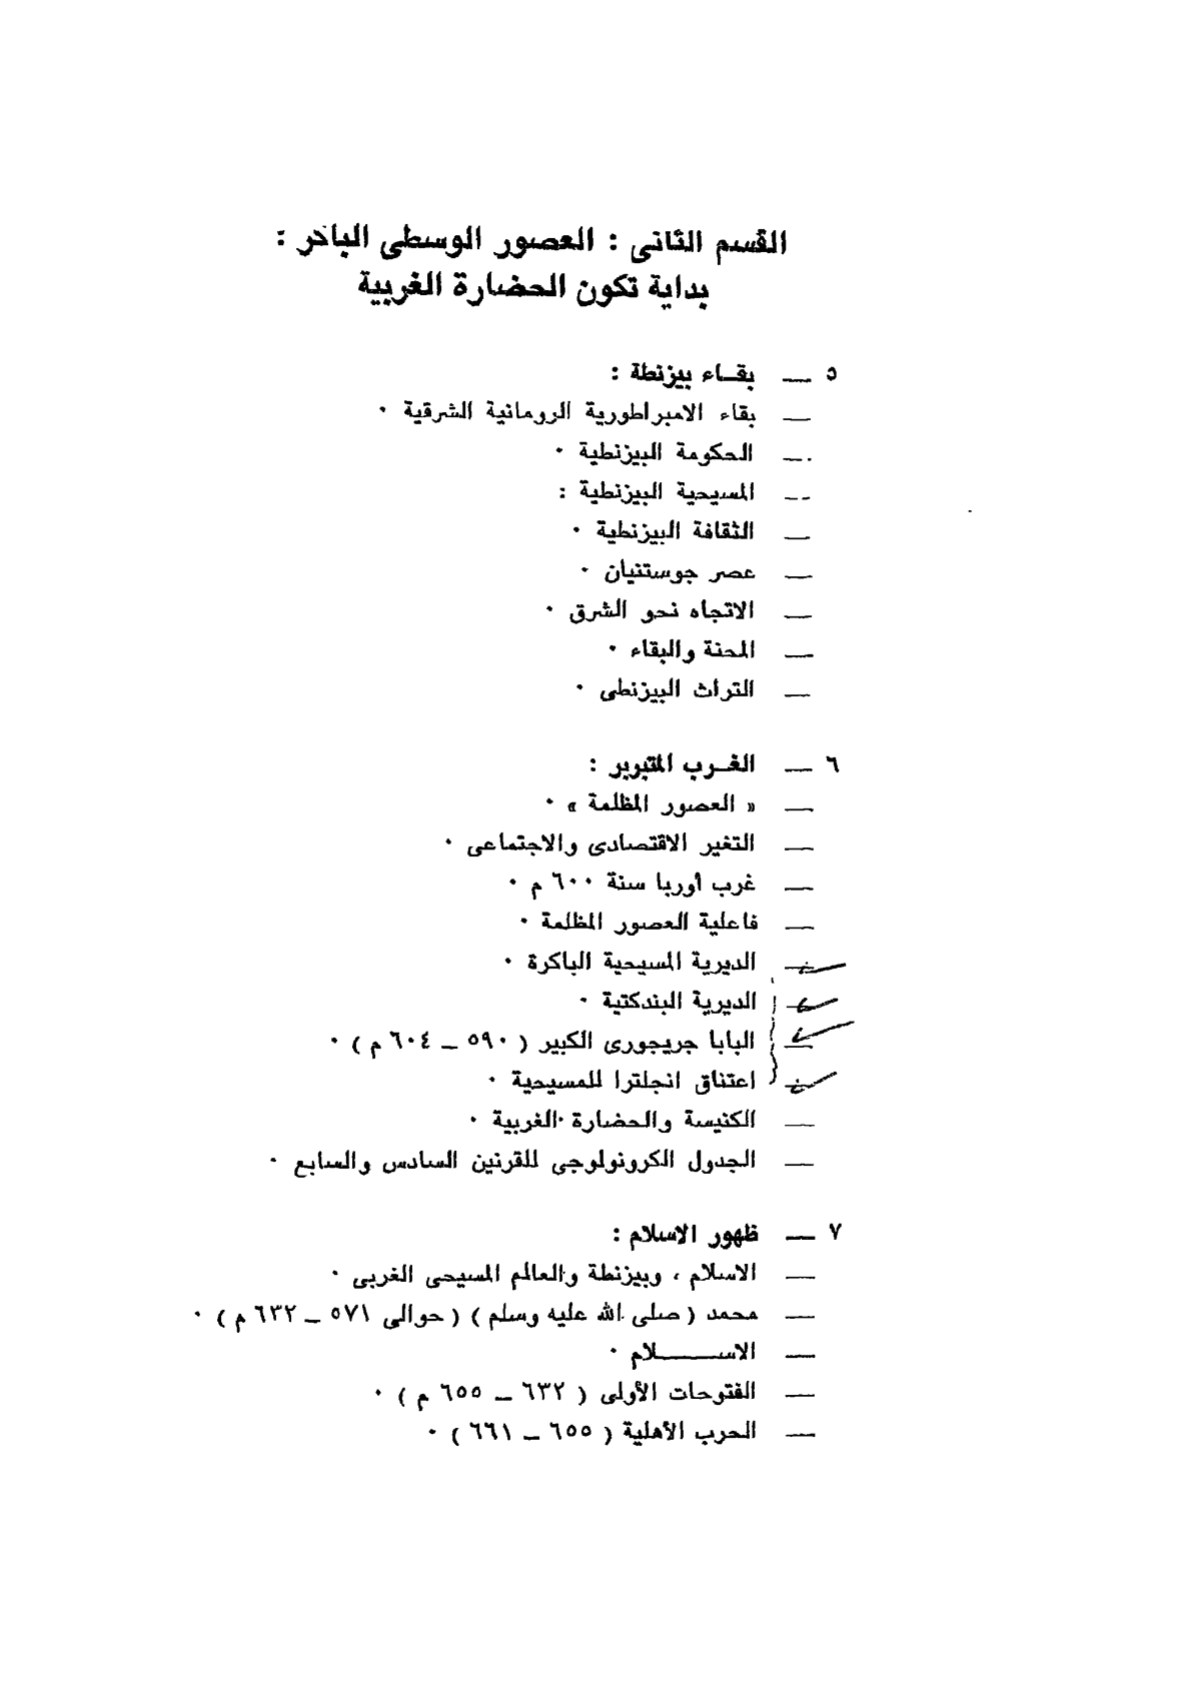 القسم الثانى : العصور الوسطى الباخر :
بداية تكون الحضارة الغربية
٥ — بقــاء بيزنطة :
— بقاء الامبراطورية الرومانية الشرقية ٠
— الحكومة البيزنطية ٠
— المسيحية البيزنطية :
— الثقافة البيزنطية ٠
— عصر جوستنيان ٠
— الاتجاه نحو الشرق ٠
— المحنة والبقاء ٠
— التراث البيزنطى ٠
٦ — الغــرب المتبربر :
— « العصور المظلمة » ٠
— التغير الاقتصادى والاجتماعى ٠
— غرب أوربا سنة ٦٠٠ م ٠
— فاعلية العصور المظلمة ٠
— الديرية المسيحية الباكرة ٠
— الديرية البندكتية ٠
— البابا جريجورى الكبير ( ٥٩٠ — ٦٠٤ م ) ٠
— اعتناق انجلترا للمسيحية ٠
— الكنيسة والحضارة الغربية ٠
— الجدول الكرونولوجى للقرنين السادس والسابع ٠
٧ — ظهور الاسلام :
— الاسلام ، وبيزنطة والعالم المسيحى الغربى ٠
— محمد ( صلى الله عليه وسلم ) ( حوالى ٥٧١ — ٦٣٢ م ) ٠
— الاســـــــلام ٠
— الفتوحات الأولى ( ٦٣٢ — ٦٥٥ م ) ٠
— الحرب الأهلية ( ٦٥٥ — ٦٦١ ) ٠